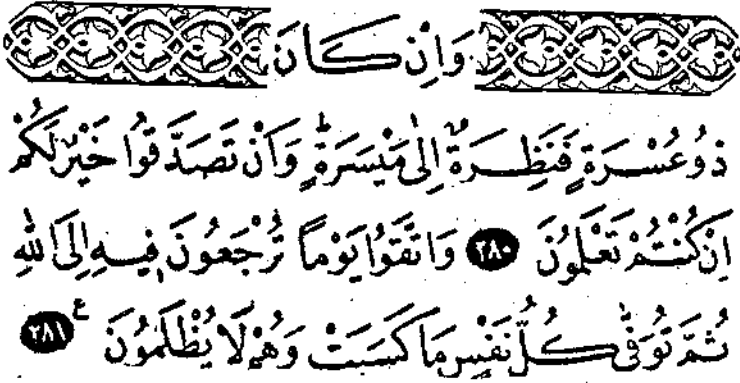 وَاِنْ كَانَ
ذُو عُسْرَةٍ فَنَظِرَةٌ اِلٰى مَيْسَرَةٍؕ وَاَنْ تَصَدَّقُوا خَيْرٌ لَكُمْ
اِنْ كُنْتُمْ تَعْلَمُونَ ﴿٢٨٠﴾ وَاتَّقُوا يَوْماً تُرْجَعُونَ فِيهِ اِلَى اللّٰهِ
ثُمَّ تُوَفّٰى كُلُّ نَفْسٍ مَا كَسَبَتْ وَهُمْ لَا يُظْلَمُونَ ﴿٢٨١﴾ ع